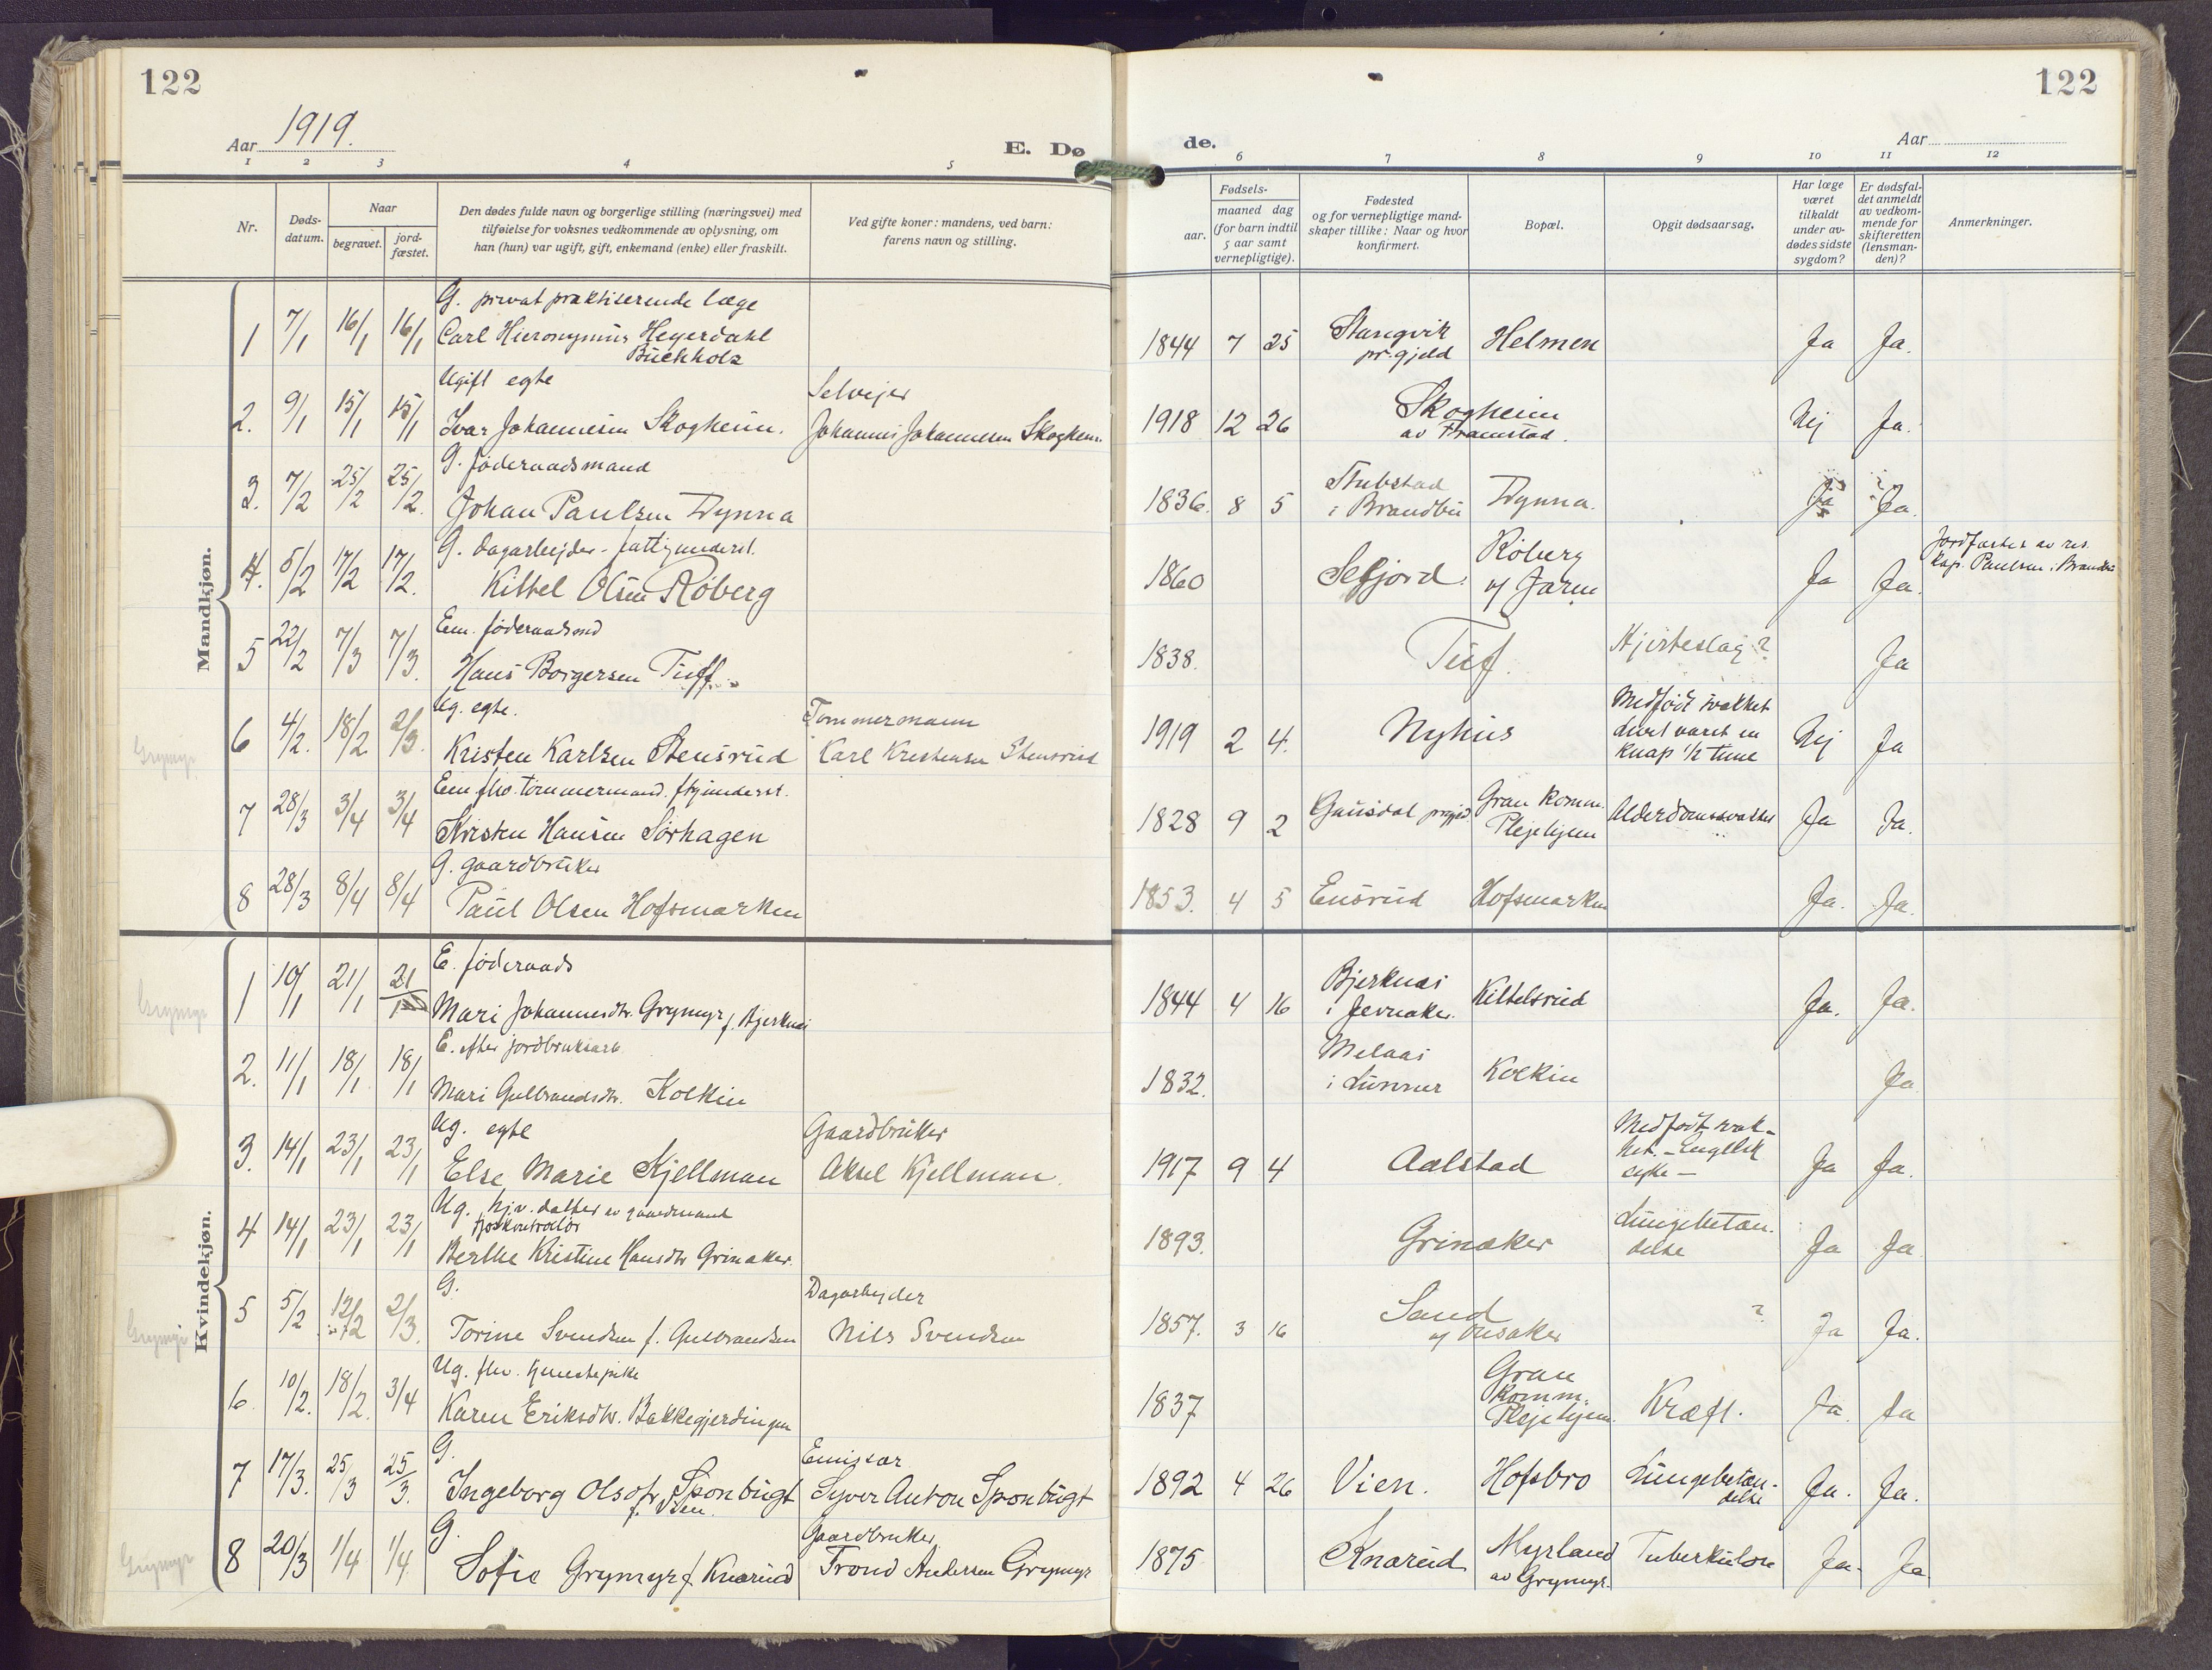 122
122
Aar 1919.
E. Dø
de.
Aar
1 2 3 4 5 6 7 8 9 10 11 12
Nr.
Døds-
datum.
Naar
begravet.
jord-
fæstet.
Den dødes fulde navn og borgerlige stilling (næringsvei) med
tilføielse for voksnes vedkommende av oplysning, om
han (hun) var ugift, gift, enkemand (enke) eller fraskilt.
Ved gifte koner: mandens, ved barn:
farens navn og stilling.
Fødsels-
aar.
maaned dag
(for barn indtil
5 aar samt
vernepligtige).
Fødested
og for vernepligtige mand-
skaper tillike: Naar og hvor
konfirmert.
Bopæl.
Opgit dødsaarsag.
Har læge
været
tilkaldt
under av-
dødes sidste
sygdom?
Er dødsfal-
det anmeldt
av vedkom-
mende for
skifteretten
(lensman-
den)?
Anmerkninger.
Mandkjøn.
G. privat praktiserende læge
1 7/1 16/1 16/1 Carl Hieronymus Heyerdahl
Buchholz
1844 7 25 Stangvik
pr.gjeld
Helmen Ja Ja.
Ugift egte
Selveier
2. 9/1 15/1 15/1 Ivar Johannesen Skogheim. Johannes Johannesen Skogheim
1918 12 26 Skogheim
av Framstad.
Nej Ja.
G. føderaadsmand
3. 7/2 25/2 25/2. Johan Paulsen Dynna
1836. 8 5 Stubstad
i Brandbu
Dynna. Ja Ja.
G. dagarbejder - fattigunderst.
4. 5/2 17/2 17/2. Kittel Olsen Røberg
1860 Sefjord.
Røberg
u/ Jaren
Ja Ja.
Jordfæstet av res.
kap. Paulsen i Brandbu
Em. føderaadsmd
5 22/2 7/3 7/3. Hans Borgersen Tuff
1838. Tuf. Hjerteslag? Ja
Ug. egte.
Tømmermann
6 4/2. 18/2 2/3. Kristen Karlsen Stensrud Carl Kristensen Stensrud
Grymyr
1919 2 4. Nyhus
Medfødt svakhet
levet varet en
knap 1/2 time
Nej Ja
Em. fhv. tømmermand. ftgunderst.
7 28/3 3/4 3/4 Kristen Hansen Sørhagen
1828 9 2 Gausdal prgjd.
Gran komm.
Plejehjem
Alderdomssvakhet Ja Ja.
G. gaardbruker
8 28/3 8/4 8/4 Paul Olsen Hofsmarken
1853. 4 5 Ensrud Hofsmarken Ja. Ja.
Kvindekjøn.
E. føderaads
1 10/1 21/1 21/1 Mari Johannesdtr. Grymyr f. Bjerknes
Grymyr
1844 4 16 Bjerknes
i Jevnaker.
Kittelsrud Ja. Ja.
E. efter jordbruksarb.
2. 11/1 18/1 18/1 Mari Gulbrandsdtr. Kolkin
1832. Melaas
i Lunner
Kolkin Ja
Ug. egte
Gaardbruker
3. 14/1 23/1 23/1 Else Marie Kjellman Aksel Kjellman.
1917 9 4 Aalstad
Medfødt svak-
het. - Engelsk
syke -
Ja Ja.
Ug. hjv. datter av gaardmand
fjøskontrollør
4 14/1 23/1 23/1 Berthe Kristine Hansdtr Grinaker.
1893. Grinaker
Lungebetæn-
delse
Ja Ja
G.
Dagarbejder
5 5/2 12/2 2/3. Torine Svendsen f. Gulbrandsen Nils Svendsen
Grymyr
1857. 3 16 Sand
u/ Onsaker
? Ja Ja.
Ug. fhv. tjenestepike
6. 10/2. 18/2. 3/4 Karen Eriksdtr. Bakkegjerdingen
1837
Gran
Komm.
Plejehjem.
Kræft. Ja. Ja
G.
Emissær
7 17/3. 25/3 25/3. Ingeborg Olsdtr. Sponbugt Syver Anton Sponbugt
f. Vien.
1892 4 26 Vien. Hofsbro
Lungebetæn-
delse
Ja. Ja.
G.
Gaardbruker
8 20/3 1/4 1/4. Sofie Grymyr f. Knarud Trond Andersen Grymyr
Grymyr
1875 Knarud
Myrland
av Grymyr.
Tuberkulose Ja. Ja